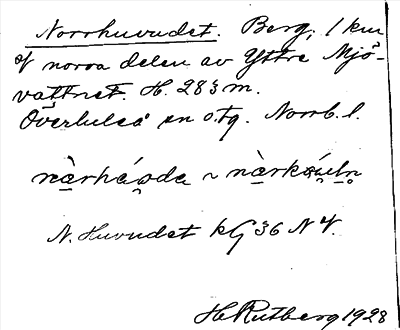 Norrhuvudet. Berg, 1 km
V norra delen av Yttre Mjö-
vattnet. H. 283 m.
Överluleå sn o. tg. Norrb. l.
N. Huvudet kG 36 NV.
H Rutberg 1928